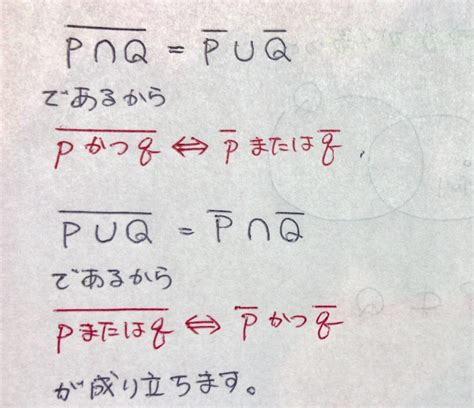 $\overline{P \cap Q} = \overline{P} \cup \overline{Q}$
であるから
$\overline{p かつ q} \Leftrightarrow \overline{p} または \overline{q}$ ,
$\overline{P \cup Q} = \overline{P} \cap \overline{Q}$
であるから
$\overline{p または q} \Leftrightarrow \overline{p} かつ \overline{q}$
が成り立ちます。